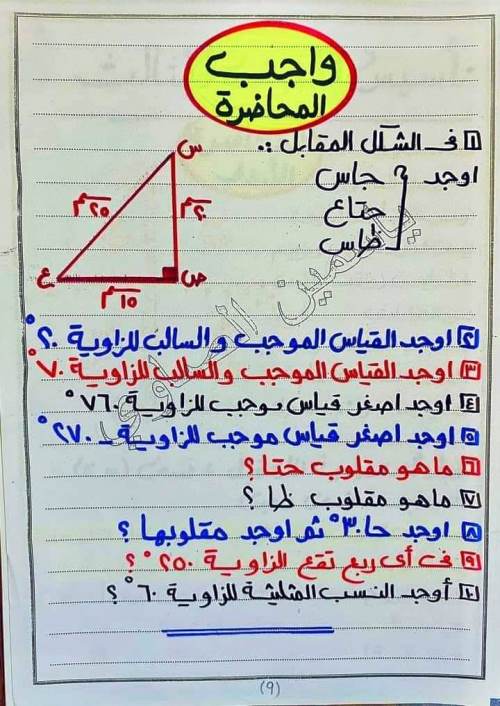 واجب
المحاضرة
١ فى الشكل المقابل :.
اوجد جاس
جتاع
ظاس
س
٢٥سم
٢٠سم
ع
ص
١٥سم
٢ اوجد القياس الموجب والسالب للزاوية ٢٠°
٣ اوجد القياس الموجب والسالب للزاوية ٧٠°
٤ اوجد اصغر قياس موجب للزاوية ٧٦٠°
٥ اوجد اصغر قياس موجب للزاوية - ٢٧٠°
٦ ماهو مقلوب جتا ؟
٧ ماهو مقلوب ظا ؟
٨ اوجد جا٣٠° ثم اوجد مقلوبها ؟
٩ فى أى ربع تقع الزاوية ٢٥٠° ؟
١٠ أوجد النسب المثلثية للزاوية ٦٠° ؟
(٩)